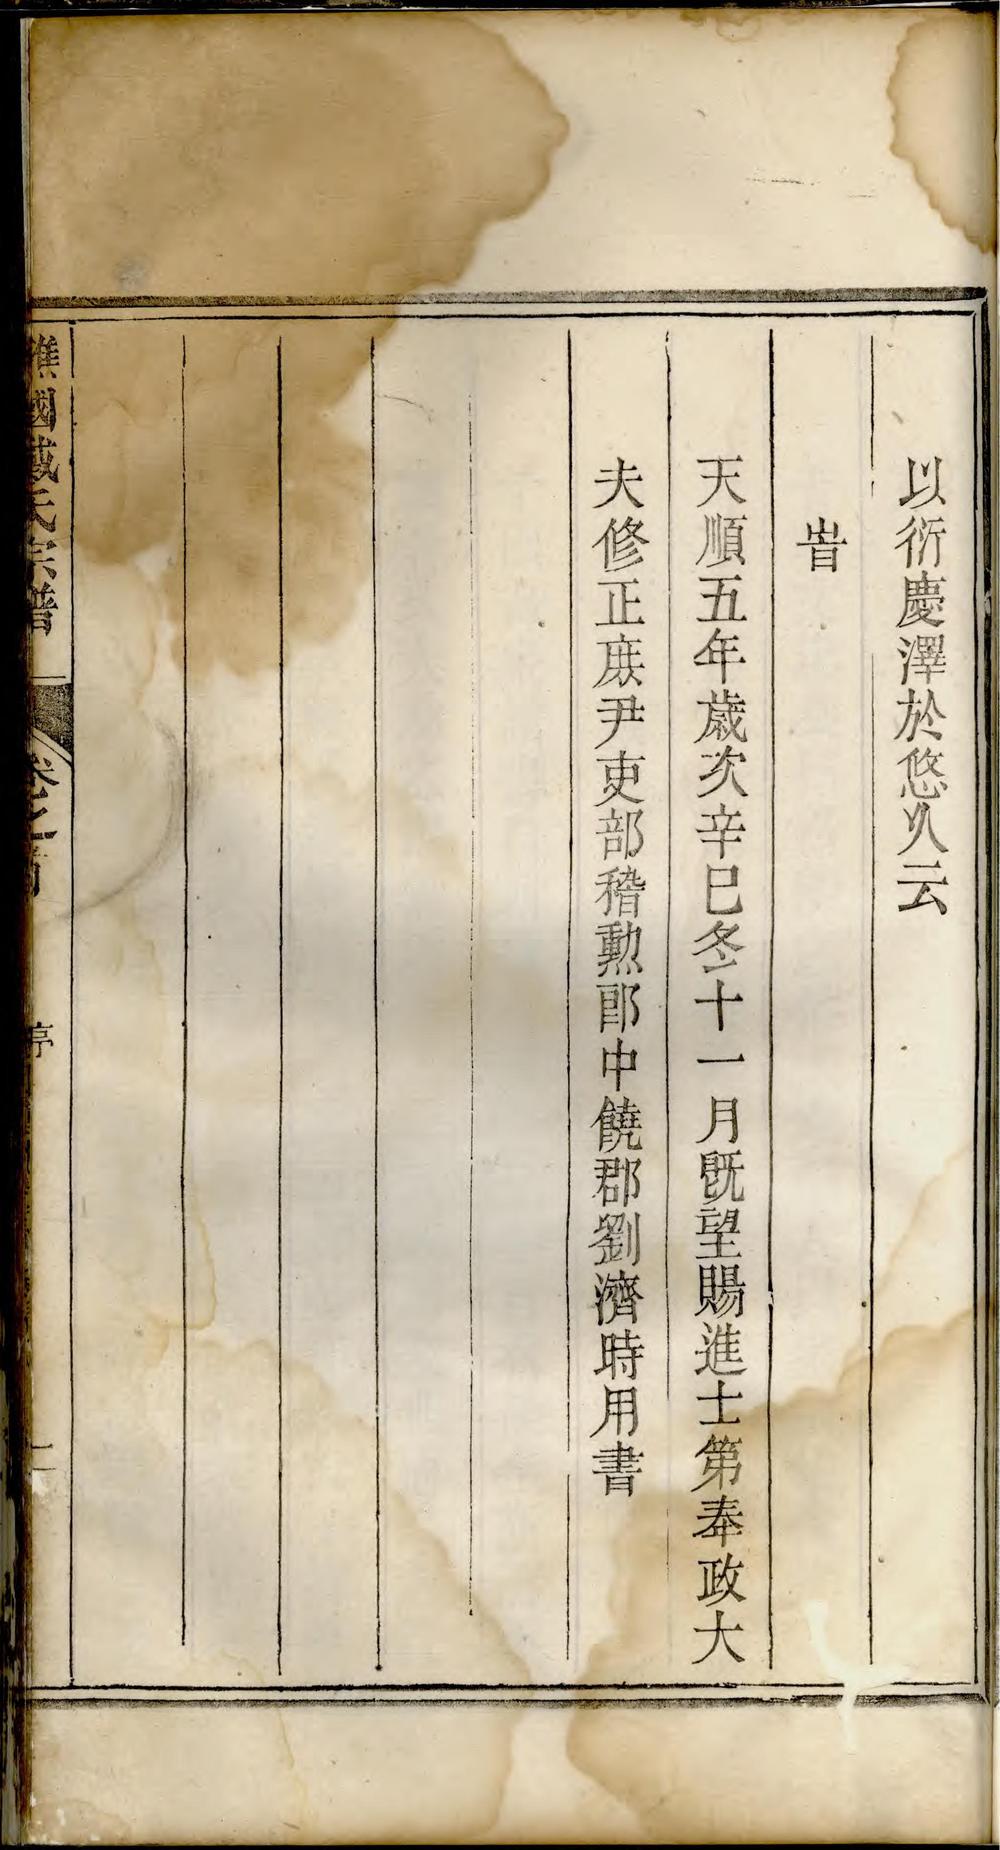 以衍慶澤於悠久云
旹
天順五年歲次辛巳冬十一月既望賜進士第奉政大
夫修正庶尹吏部稽勲郎中饒郡劉濟時用書
譙國戴氏宗譜
卷之首
序
二